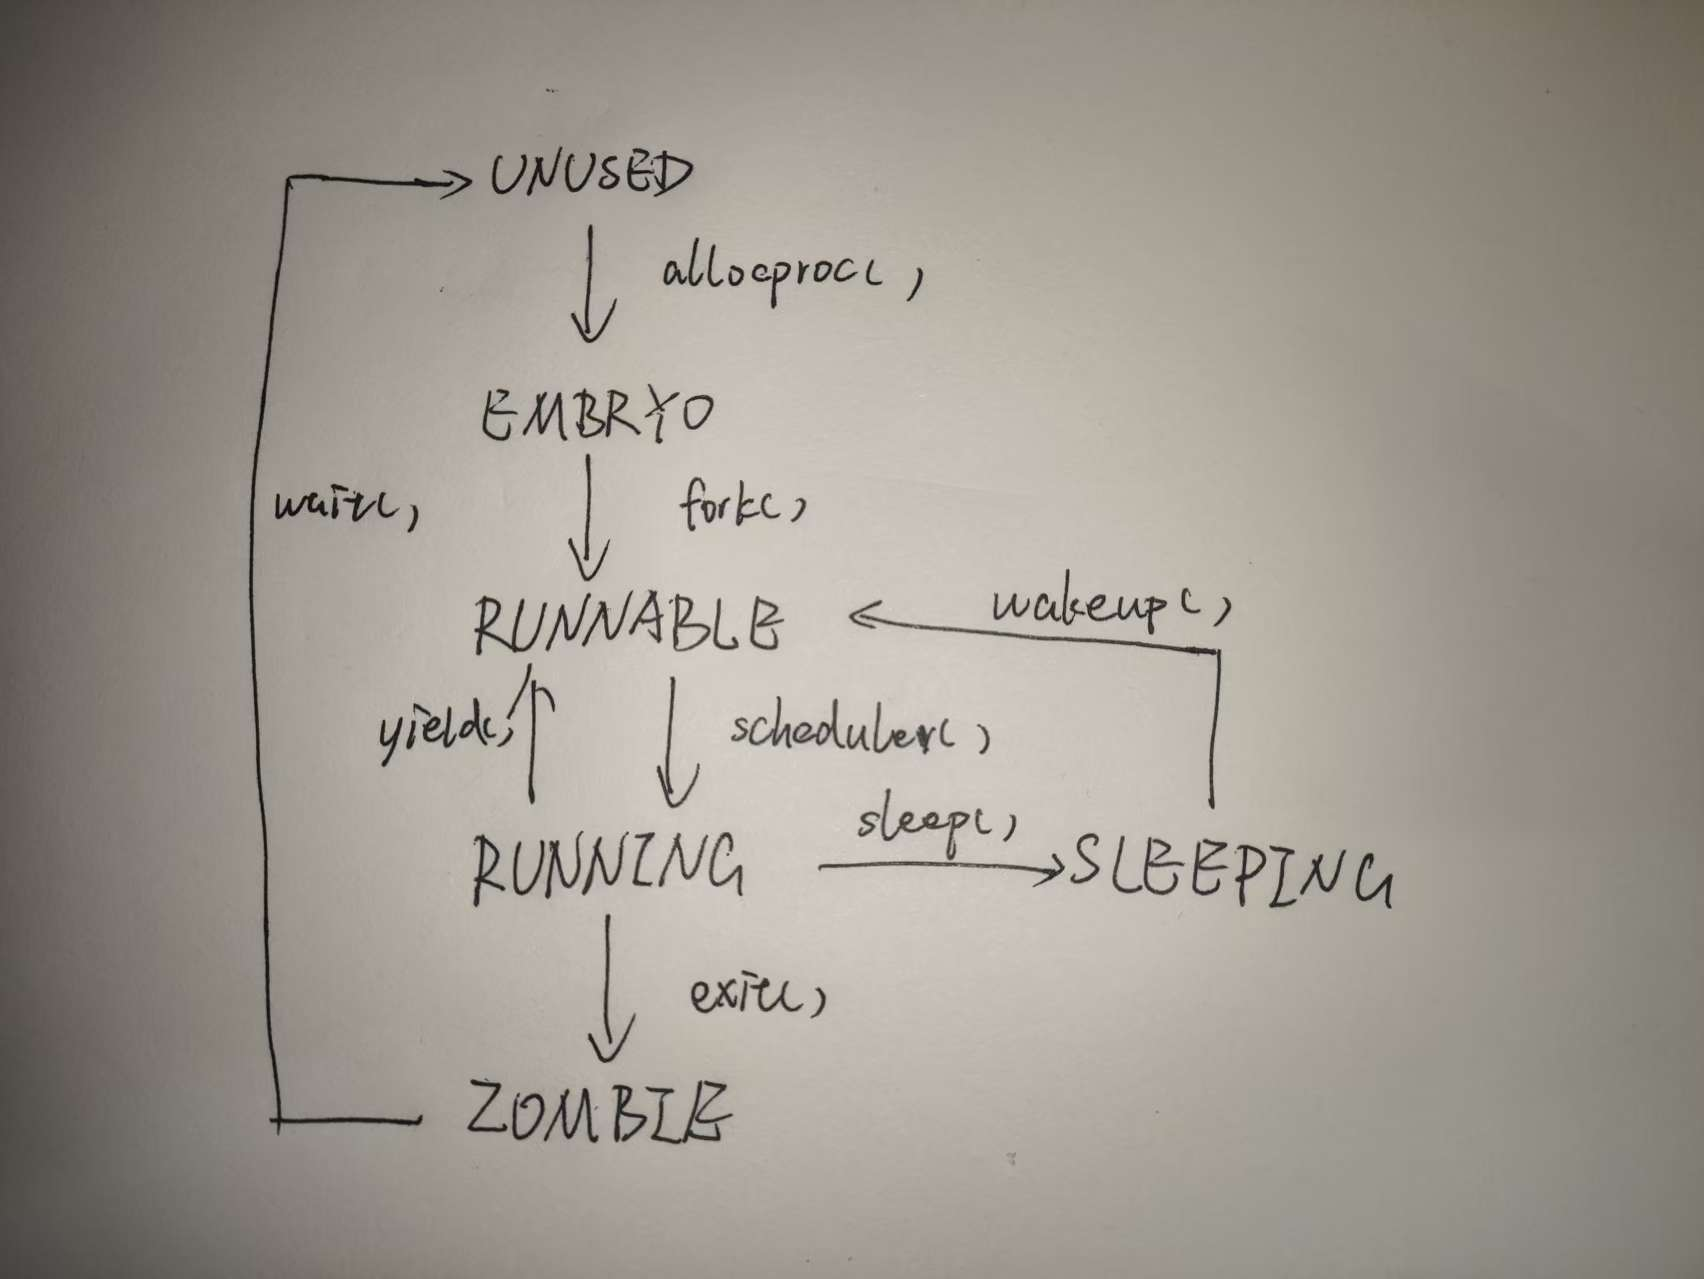 UNUSED
allocproc()
EMBRYO
wait()
fork()
RUNNABLE
wakeup()
yield()
scheduler()
sleep()
RUNNING
SLEEPING
exit()
ZOMBIE